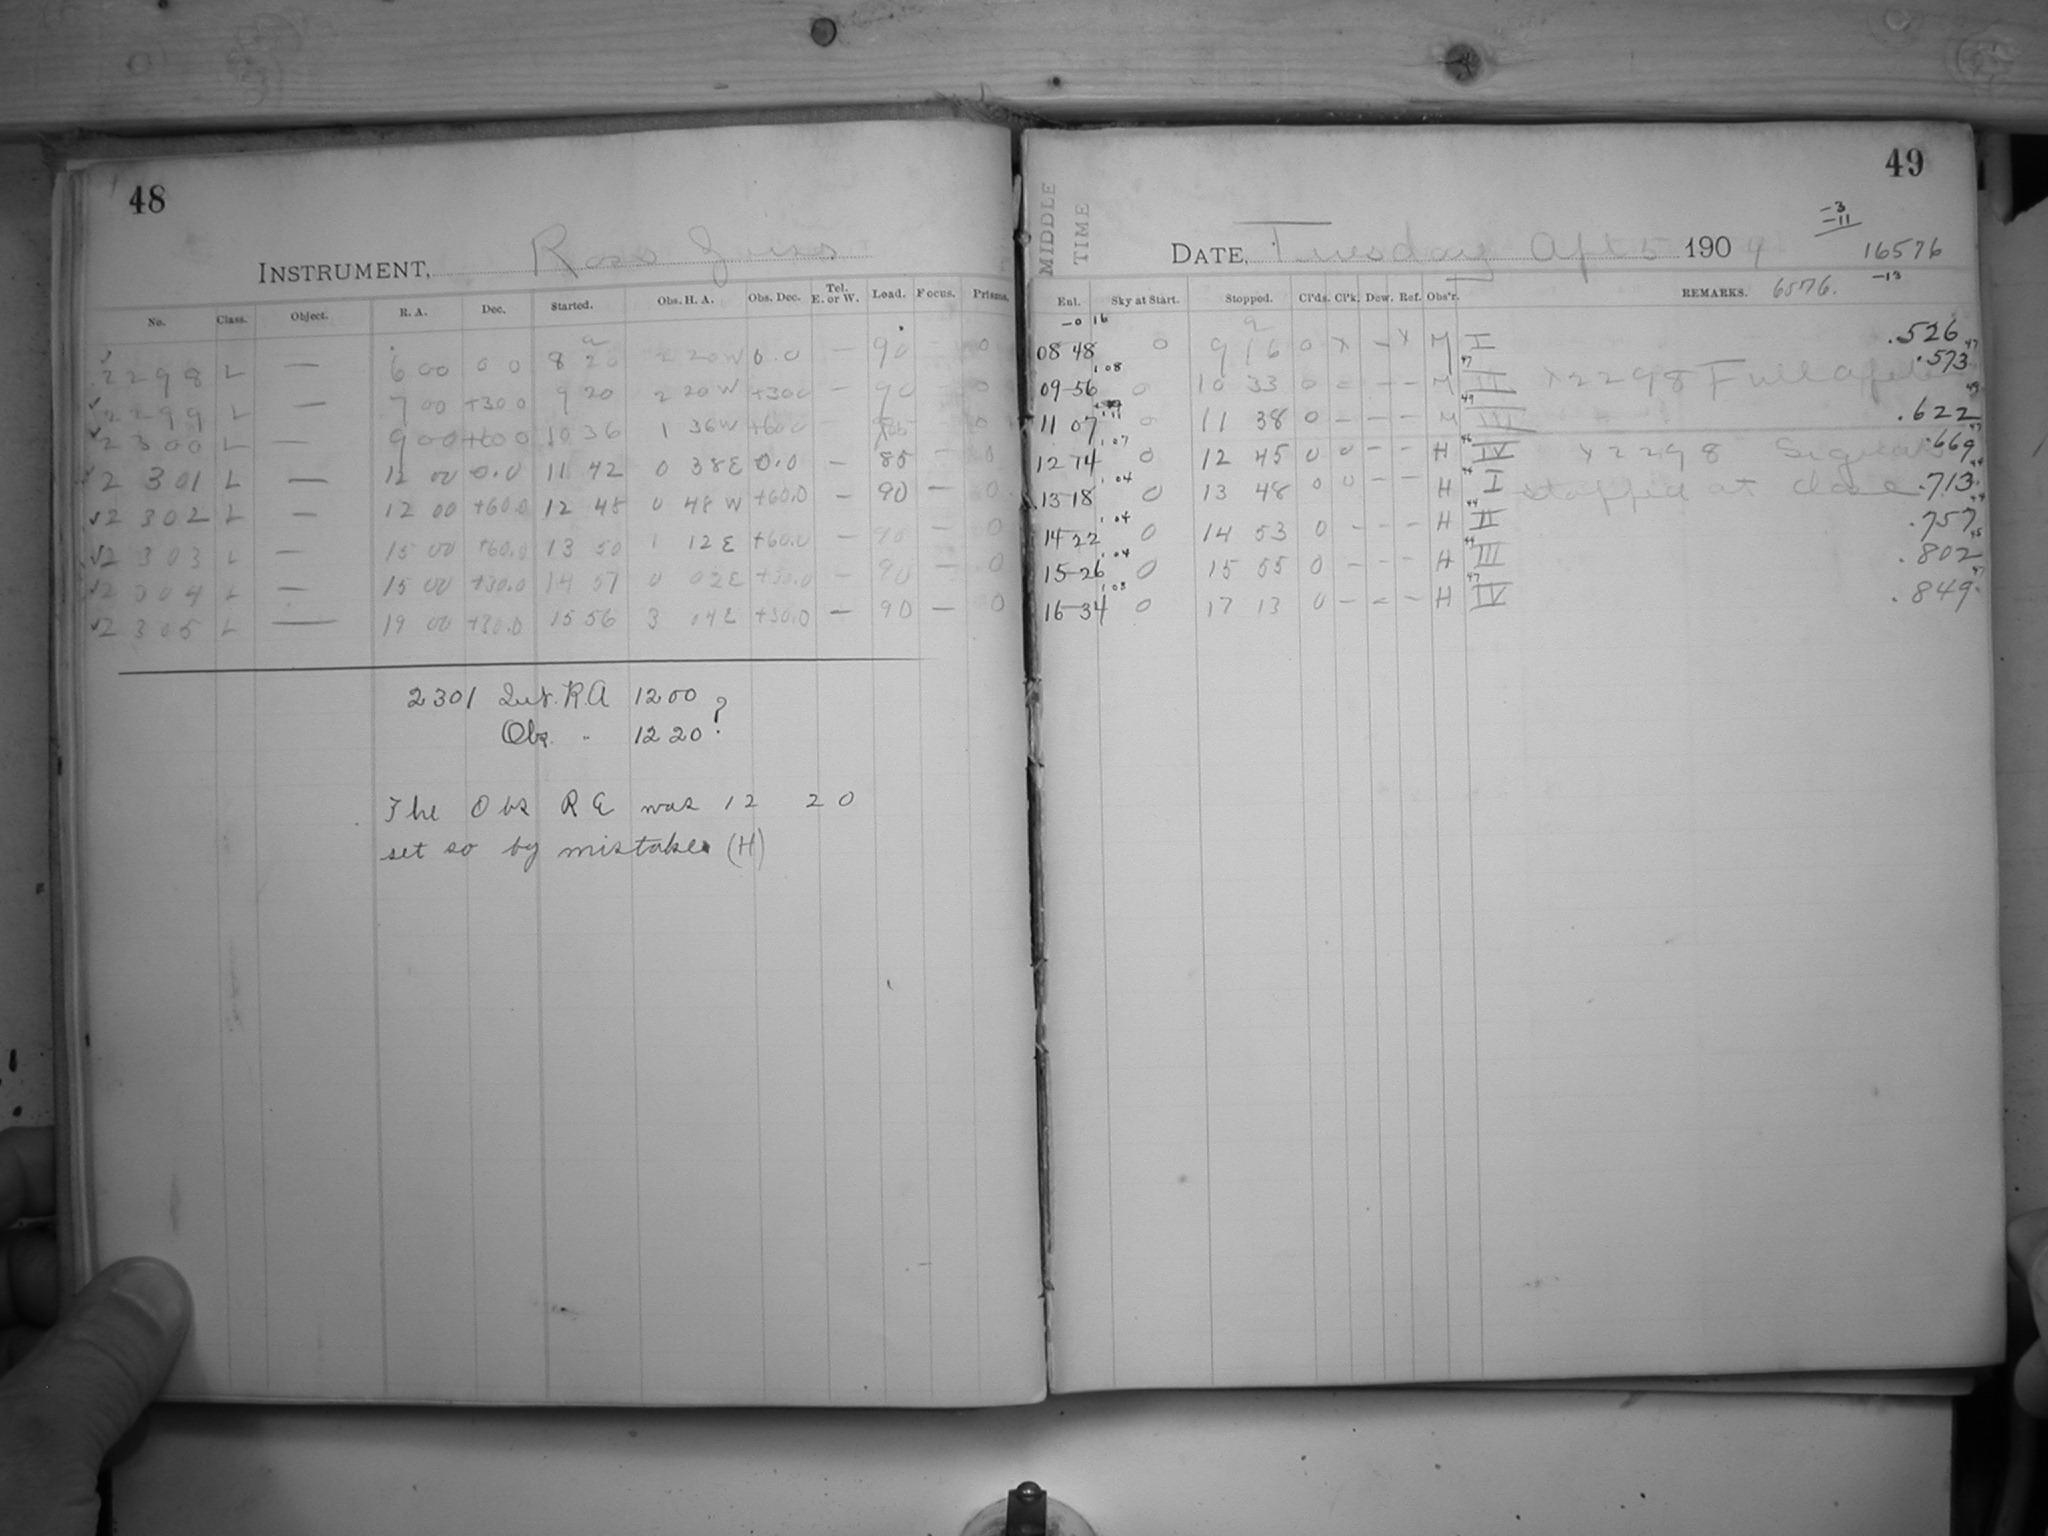 48
INSTRUMENT, Ross
No. Class. Object. R. A. Dec. Started. Obs. H. A. Obs. Dec. Tel. E. or W. Load. Focus. Prisms.
2298 L — 6 00 0 0 8 20 2 20W 0.0 — 90 — 0
2299 L — 7 00 +30 0 9 20 2 20W +300 — 90 — 0
2300 L — 9 00 +60 0 10 36 1 36W +60.0 — 0
2301 L — 12 00 0.0 11 42 0 38E 0.0 — 85 — 0
2302 L — 12 00 +60.0 12 45 0 48W +60.0 — 90 — 0
2303 L — 15 00 +60.0 13 50 1 12E +60.0 — 90 — 0
2304 L — 15 00 +30.0 14 57 0 02E +30.0 — 90 — 0
2305 L — 19 00 +30.0 15 56 3 04E +30.0 — 90 — 0
2301 Int. R.A 1200
Obs. " 1220 ?
The Obs R A was 12 20
set so by mistake (H)
49
MIDDLE TIME
-3
-11
DATE, Tuesday 5 1904 16576
-13
Enl. Sky at Start. Stopped. Cl'ds. Cl'k. Dew. Ref. Obs'r. REMARKS. 6576.
08 48 0 9 16 0 x — x M I .526
09-56 0 10 33 0 — — — M II x2298 Full .573
11 07 0 11 38 0 — — — M III .622
12 14 0 12 45 0 0 — — H IV x2298 Signal .669
13-18 0 13 48 0 0 — — H I stopped at close .713
14 22 0 14 53 0 — — — H II .757
15-26 0 15 55 0 — — — H III .802
16-34 0 17 13 0 — — — H IV .849